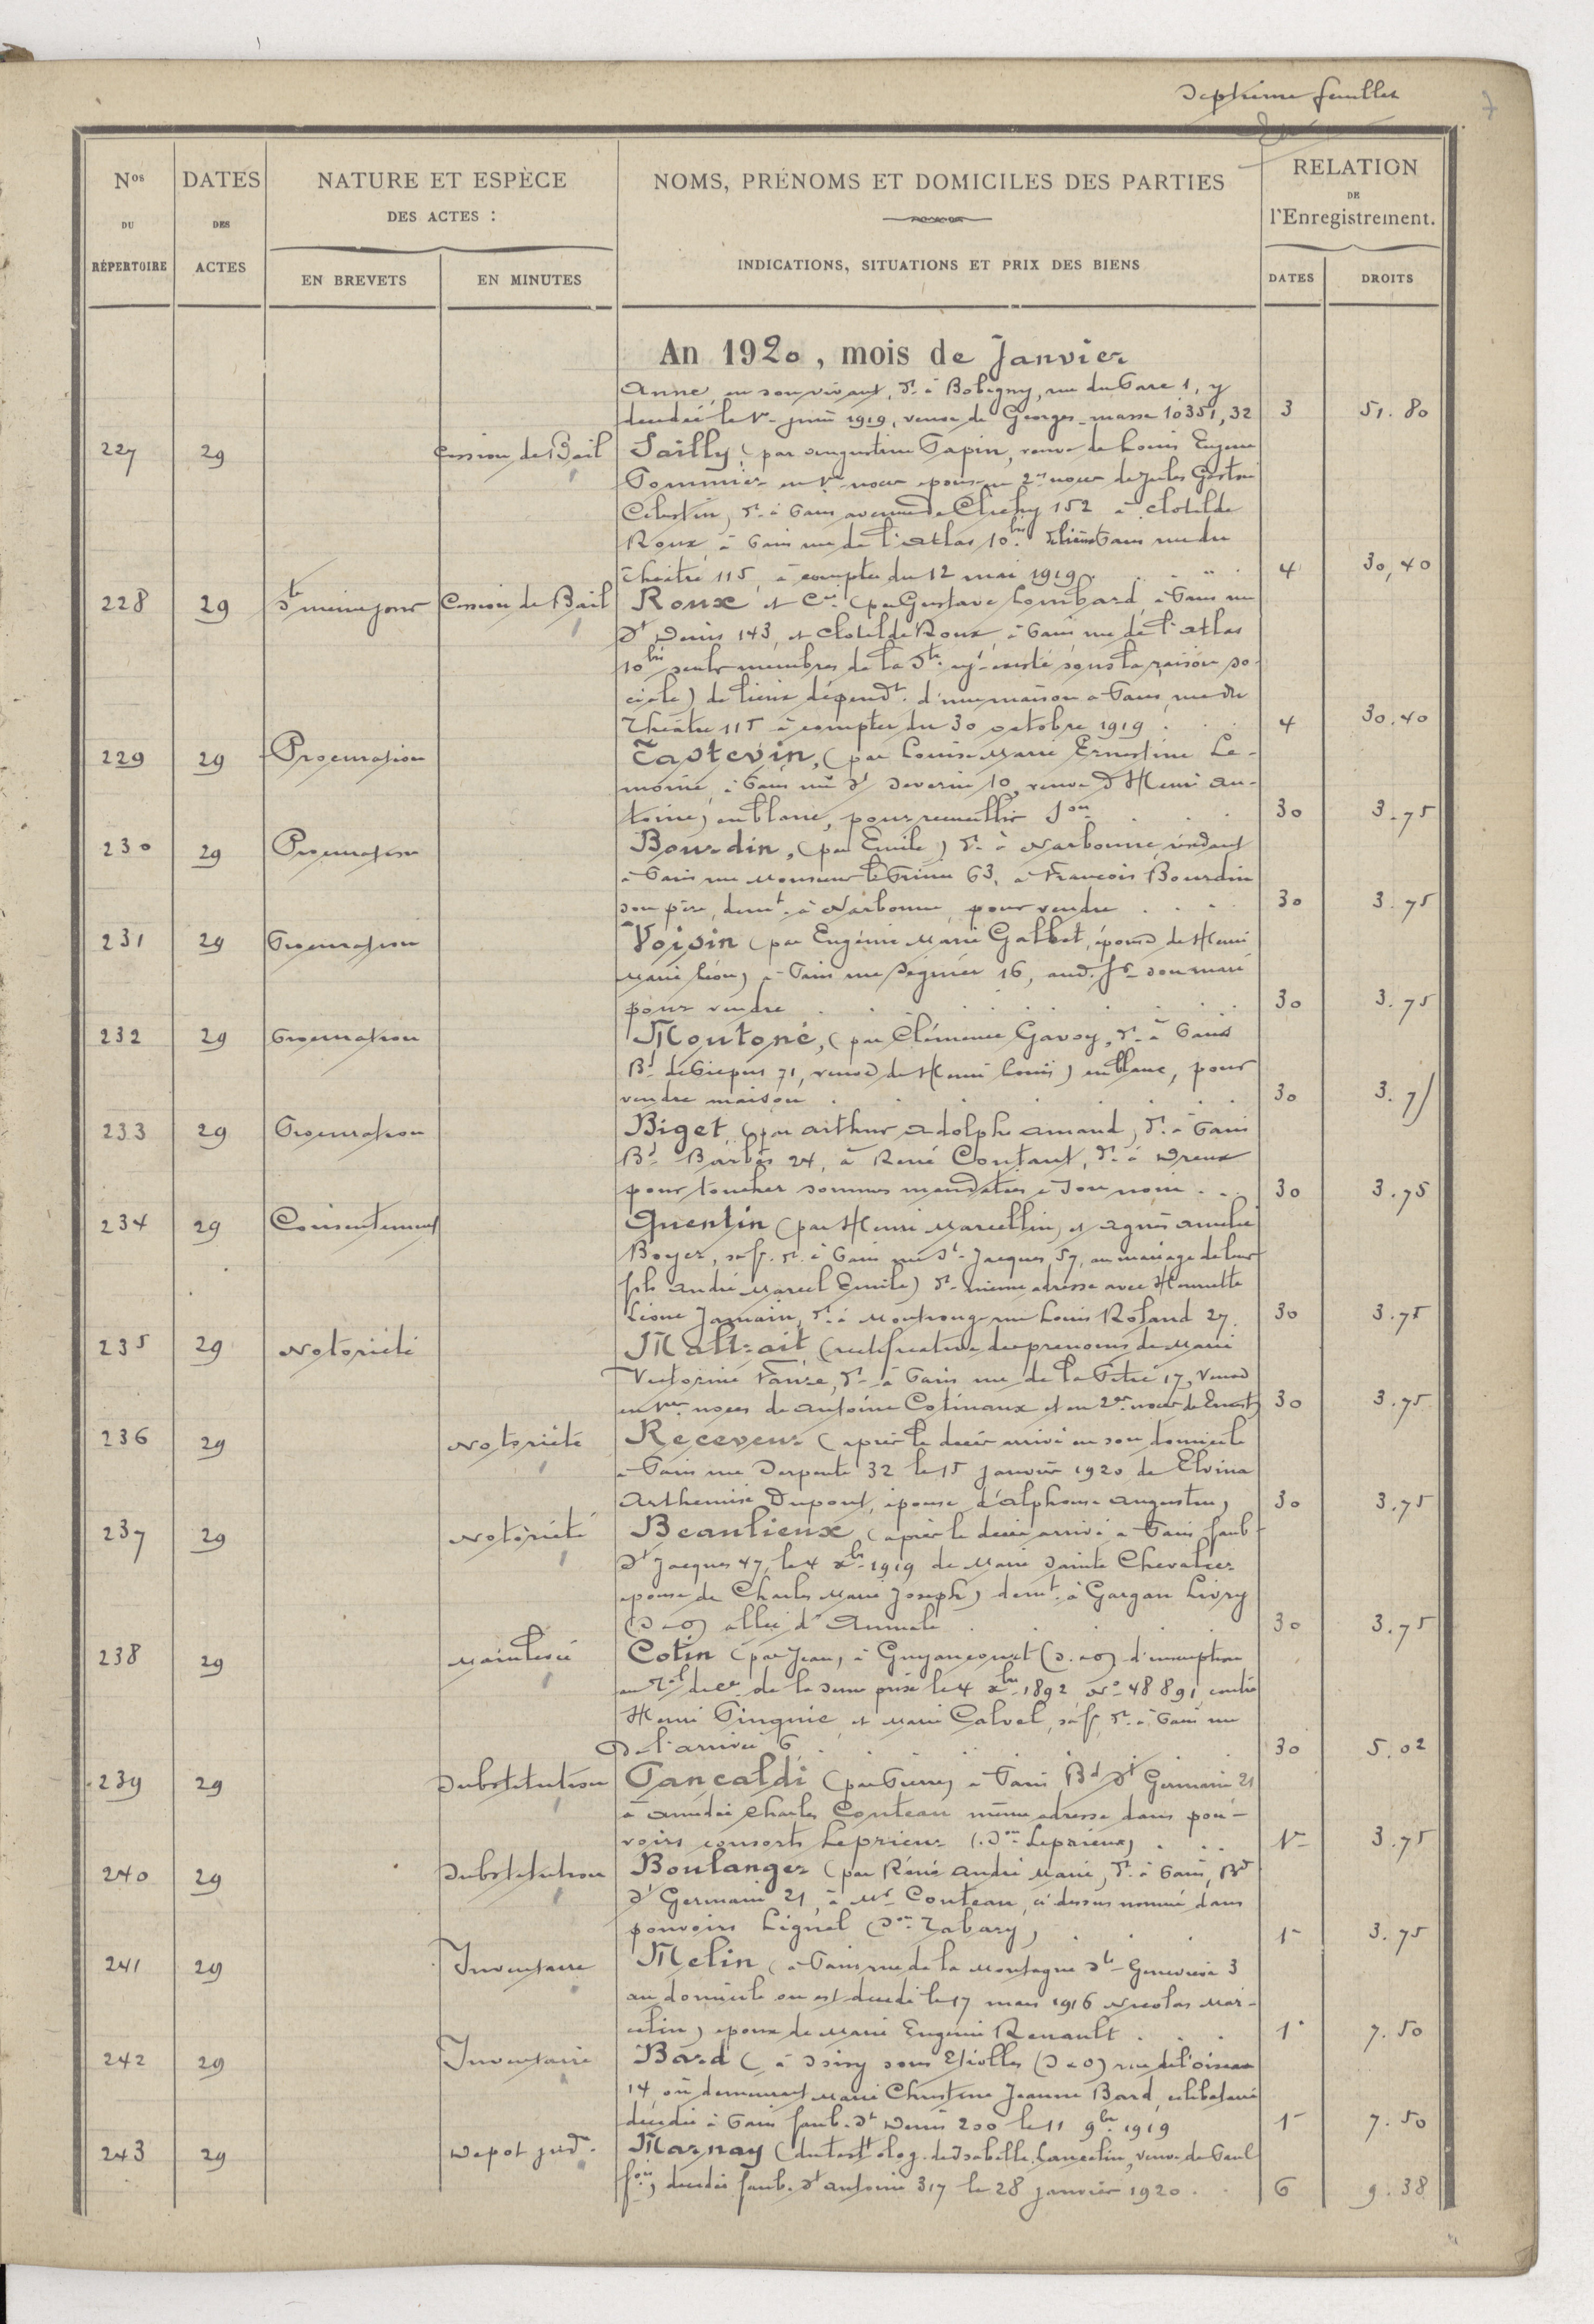 Septième feuillet
7
Nos DU RÉPERTOIRE
DATES DES ACTES
NATURE ET ESPÈCE
DES ACTES :
EN BREVETS
EN MINUTES
NOMS, PRÉNOMS ET DOMICILES DES PARTIES
INDICATIONS, SITUATIONS ET PRIX DES BIENS
RELATION
DE
l'Enregistrement.
DATES
DROITS
An 1920, mois de Janvier
Anne, en son vivant, dt à Bobigny, rue du Parc 1, y
décédée le 1er juin 1919, veuve de Georges - masse 10351,32 3 51.80
227 29 Cession de Bail Sailly (par Augustine Papin, veuve de Louis Eugène
Pommier en 1res noces épouse en 2es noces de Jules Gaston
Célestin) dt à Paris avenue de Clichy 152 à Clotilde
Roux à Paris rue de l'Atlas 10bis Paris rue du
Théâtre 115, à compter du 12 mai 1919 4 30,40
228 29 dt même jour Cession de Bail Roux et Cie (par Gustave Lombard à Paris rue
St Denis 143, et Clotilde Roux à Paris rue de l'Atlas
10bis seuls membres de la Sté ayt existé sous la raison so-
ciale) de lieux dépendt d'une maison à Paris, rue du
Théâtre 115 à compter du 30 octobre 1919 4 30.40
229 29 Procuration Tastevin, (par Louise Marie Ernestine Le-
moine, à Paris rue St Severin 10, veuve d'Henri An-
toine) en blanc, pour recueillir Son 30 3.75
230 29 Procuration Bourdin, (par Emile) dt à Narbonne, résidant
à Paris rue Monsieur le Prince 63, à François Bourdin
son père, demt à Narbonne pour vendre 30 3.75
231 29 Procuration Voisin (par Eugénie Marie Galbet, épouse de Henri
Marie Léon) à Paris rue Séguier 16, aud. son mari
pour vendre 30 3.75
232 29 Procuration Moutoné, (par Clémence Gavoy, dt à Paris
Bd de Picpus 71, veuve de Henri Louis) en blanc, pour
vendre maison 30 3.75
233 29 Procuration Biget (par Arthur Adolphe Amand) dt à Paris
Bd Barbès 24, à René Contant, dt à Dreux
pour toucher sommes mandatées à son nom 30 3.75
234 29 Consentement Quentin (par Henri Marcellin et Agnès Amélie
Boyer, sa f. dt à Paris rue St Jacques, 57, au mariage de leur
fils André Marcel Emile) dt même adresse avec Henriette
Léone Jamain, dt à Montrouge rue Louis Roland 27. 30 3.75
235 29 Notoriété Maltrait (rectificative des prénoms de Marie
Victorine Fause, dt à Paris rue de la Gaité 17, veuve
en 1res noces de Antoine Cotinaux et en 2es noces de Ernest) 30 3.75
236 29 Notoriété Receveur (après le décès arrivé en son domicile
à Paris rue Serpente 32 le 15 janvier 1920 de Elvina
Arthemise Dupont, épouse d'Alphonse Augustin) 30 3.75
237 29 Notoriété Beaulieux (après le décès arrivé à Paris faub-
St Jacques 47, le 4 xbre 1919 de Marie Sainte Chevalier
épouse de Charles Marie Joseph) demt à Gargan Livry
(S-O) allée d'Aumale 30 3.75
238 29 Mainlevée Cotin (par Jean, à Guyancourt (S.-O) d'inscription
au de la Seine prise le 4 xbre 1892 No 48891 contre
Henri Pinguic et Marie Calvel, sa f, dt à Paris rue
de l'arrivée 6 30 5.02
239 29 Substitution Pancaldi (par Pierre) à Paris Bd St Germain 21
à Amédée Charles Couteau même adresse dans pou-
voirs consorts Leprieur (Son Leprieur) 1er 3.75
240 29 Substitution Boulanger (par René André Marie, dt à Paris, Bd
St Germain 21, à Mr Couteau, ci dessus nommé dans
pouvoirs Lignel (Son Tabary) 1er 3.75
241 29 Inventaire Melin (à Paris rue de la Montagne Ste Geneviève 3
au domicile où est décédé le 17 mars 1916 Nicolas Mar-
celin) époux de Marie Eugénie Renault 1er 7.50
242 29 Inventaire Bard (à Soisy sous Etiolles (S-O) rue de l'oiseau
14, où demeurait Marie Christine Jeanne Bard, célibataire
décédée à Paris faub. St Denis 200 le 11 9bre 1919 1er 7.50
243 29 Dépôt judre Marnay (du testt olog. de Isabelle Lancelin, veuve de Paul
décédée faub. St Antoine 317 le 28 janvier 1920 6 9.38